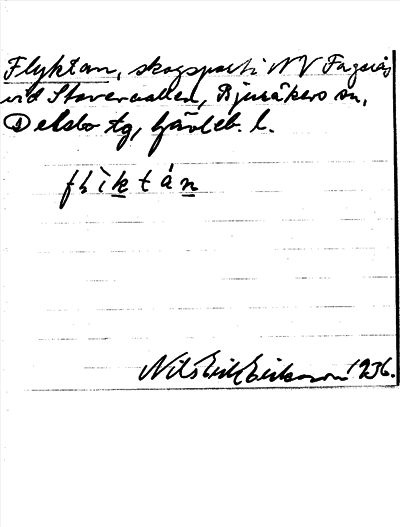 Flyktan, skogsparti NV Fagerås
vid Stavervallen, Bjuråkers sn,
Delsbo tg, Gävleb. l.
flìktán
Nils Erik Erikson 1936.